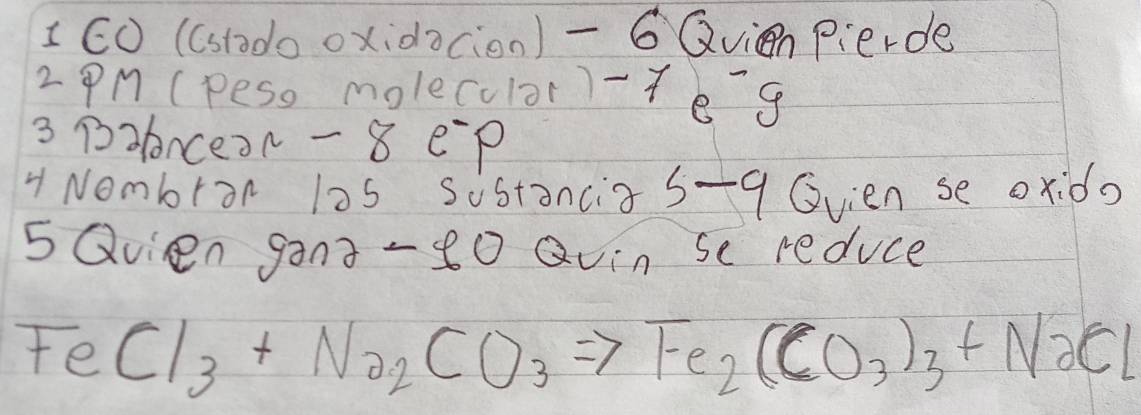 1 EO (Estado oxidacion) - 6 Quien Pierde
2 PM (peso molecular) - 7 e⁻g
3 Balancear - 8 e⁻p
4 Nombrar las sustancias - 9 Quien se oxida
5 Quien gana - 10 Quin se reduce
FeCl₃ + Na₂CO₃ => Fe₂(CO₃)₃ + NaCl